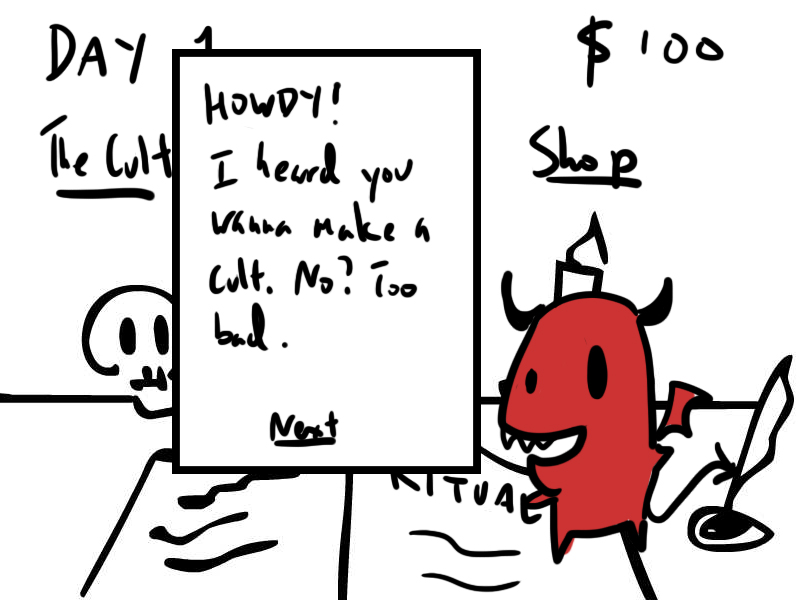 DAY 1
$100
The Cult
Shop
HOWDY!
I heard you
wanna make a
cult. No? Too
bad.
Next
RITUAL